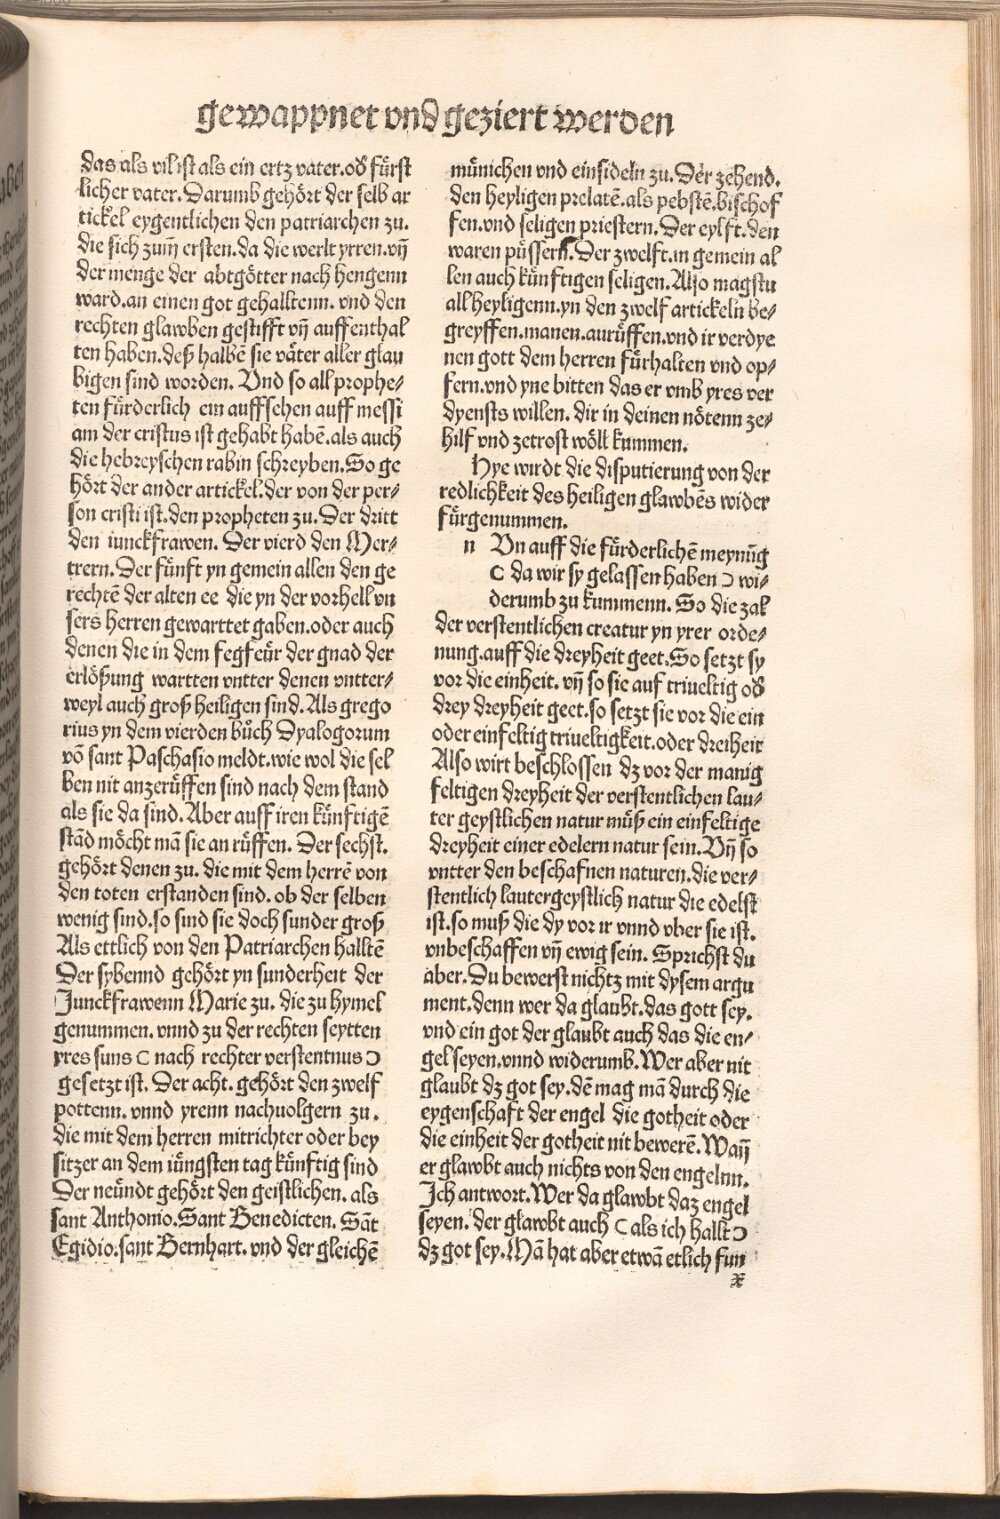 gewappnet vnd geziert werden
das als vil ist als ein ertz vater.od̕ fürst
licher vater. Darumb gehört der selb ar
tickel eygentlichen den patriarchen zu.
die sich zum̄ ersten.da die werlt yrren.vn̄
der menge der abtgötter nach hengenn
ward.an einen got gehalltenn. vnd den
rechten glawben gestifft vn̄ auffenthal
ten haben.deß halbē sie väter aller glau
bigen sind worden. Vnd so all prophe⸗
ten fürderlich ein auffsehen auff messi
am der cristus ist gehabt habē.als auch
die hebreyschen rabin schreyben.So ge
hört der ander artickel.der von der per⸗
son cristi ist.den propheten zu. Der dritt
den iunckfrawen. Der vierd den Mer⸗
trern. Der fünft yn gemein allen den ge
rechtē der alten ee die yn der vorhell vn
sers herren gewarttet gaben.oder auch
denen die in dem fegfeür der gnad der
erlößung wartten vntter denen vntter⸗
weyl auch groß heiligen sind. Als grego
rius yn dem vierden bůch Dyalogorum
vō sant Paschasio meldt.wie wol die sel
ben nit anzerüffen sind nach dem stand
als sie da sind. Aber auff iren künftigē
stād möcht mā sie an rüffen. Der sechst.
gehört denen zu. die mit dem herrē von
den toten erstanden sind. ob der selben
wenig sind.so sind sie doch sunder groß
Als ettlich von den Patriarchen halltē
Der sybennd gehört yn sunderheit der
Junckfrawenn Marie zu. die zu hymel
genummen. vnnd zu der rechten seytten
yres suns ⊂ nach rechter verstentnus ⊃
gesetzt ist. Der acht. gehört den zwelf
pottenn. vnnd yrenn nachuolgern zu.
die mit dem herren mitrichter oder bey
sitzer an dem iüngsten tag künftig sind
Der neündt gehört den geistlichen. als
sant Anthonio. Sant Benedicten. Sāt
Egidio.sant Bernhart. vnd der gleichē
münichen vnd einsideln zu. Der zehend.
den heyligen prelatē.als pebstē.bischof
fen.vnd seligen priestern. Der eylft. den
waren püssern. Der zwelft.in gemein al
len auch künftigen seligen. Also magstu
all heyligenn.yn den zwelf artickeln be⸗
greyffen.manen.anrüffen.vnd ir verdye
nen gott dem herren fürhalten vnd op⸗
fern.vnd yne bitten das er vmb yres ver
dyensts willen. dir in deinen nötenn ze⸗
hilf vnd zetrost wöll kummen.
Hye wirdt die disputierung von der
redlichkeit des heiligen glawbēs wider
fürgenummen.
n Vn auff die fürderlichē meynūg
⊂ da wir sy gelassen haben ⊃ wi⸗
derumb zu kummenn. So die zal
der verstentlichen creatur yn yrer orde⸗
nung.auff die dreyheit geet. So setzt sy
vor die einheit. vn̄ so sie auf triueltig od̕
drey dreyheit geet.so setzt sie vor die ein
oder einfeltig triueltigkeit.oder dreiheit
Also wirt beschlossen dz vor der manig
feltigen dreyheit der verstentlichen lau⸗
ter geystlichen natur müß ein einfeltige
dreyheit einer edelern natur sein. Vn̄ so
vntter den beschafnen naturen.die ver⸗
stentlich lautergeystlich natur die edelst
ist.so muß die dy vor ir vnnd vber sie ist.
vnbeschaffen vn̄ ewig sein. Sprichst du
aber. Du bewerst nichtz mit dysem argu
ment.denn wer da glaubt.das gott sey.
vnd ein got der glaubt auch das die en⸗
gel seyen.vnnd widerumb. Wer aber nit
glaubt dz got sey.dē mag mā durch die
eygenschaft der engel die gotheit oder
die einheit der gotheit nit bewerē. Wan̄
er glawbt auch nichts von den engelnn.
Ich antwort. Wer da glawbt daz engel
seyen. der glawbt auch ⊂ als ich hallt ⊃
dz got sey. Mā hat aber etwā etlich fun
x